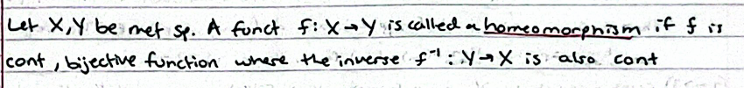 Let X,Y be met sp. A funct f: X→Y is called a homeomorphism if f is
cont, bijective function where the inverse f⁻¹: Y→X is also cont